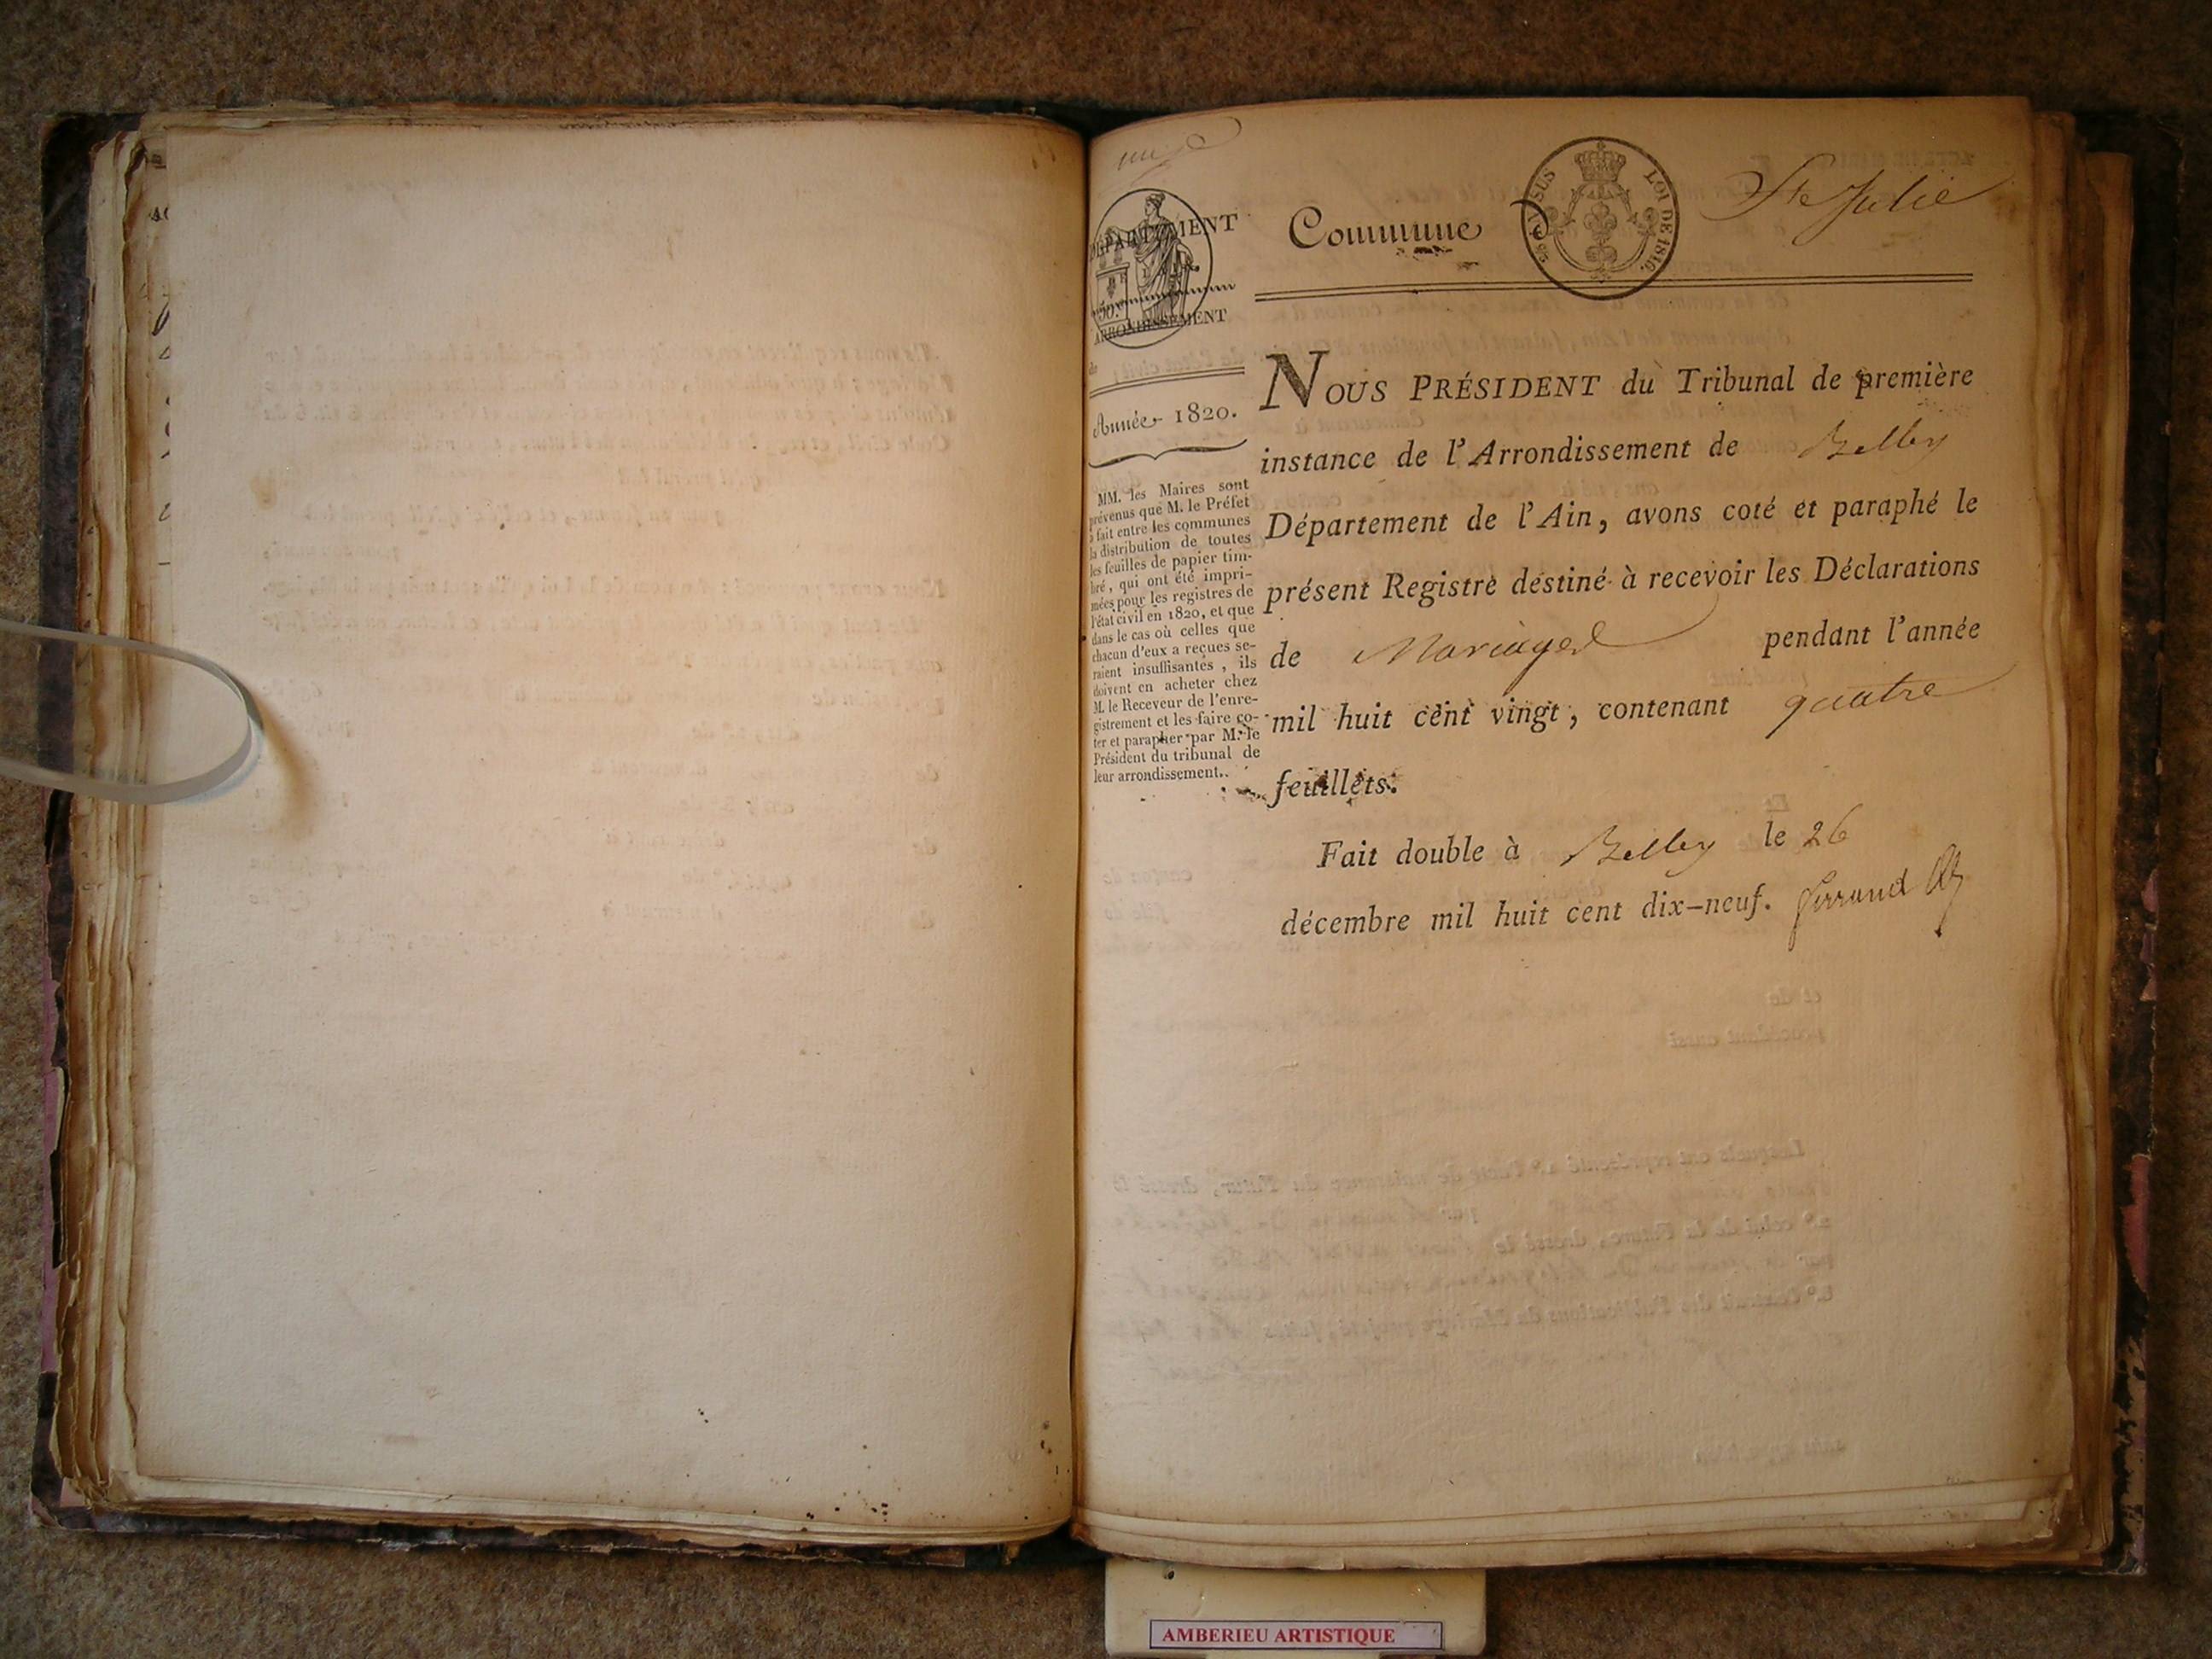 DÉPARTEMENT
50
ARRONDISSEMENT
de
Année 1820.
MM. les Maires sont
prévenus que M. le Préfet
a fait entre les communes
la distribution de toutes
les feuilles de papier tim-
bré, qui ont été impri-
mées pour les registres de
l'état civil en 1820, et que
dans le cas où celles que
chacun d'eux a reçues se-
raient insuffisantes, ils
doivent en acheter chez
M. le Receveur de l'enre-
gistrement et les faire co-
ter et parapher par M. le
Président du tribunal de
leur arrondissement.
Commune d
EN SUS
LOI DE 1816.
Ste Julie
NOUS PRÉSIDENT du Tribunal de première
instance de l'Arrondissement de Belley
Département de l'Ain, avons coté et paraphé le
présent Registre destiné à recevoir les Déclarations
de Mariages pendant l'année
mil huit cent vingt, contenant quatre
feuillets.
Fait double à Belley le 26
décembre mil huit cent dix-neuf.
AMBERIEU ARTISTIQUE